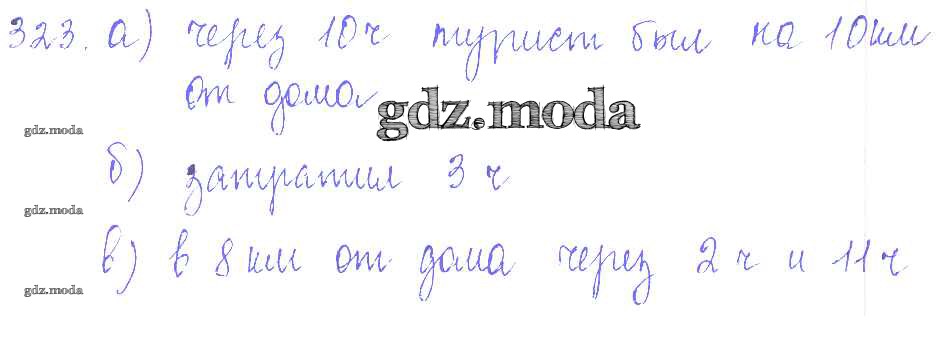 323. а) через 10ч турист был на 10км
от дома
gdz.moda
gdz.moda
б) затратил 3 ч
gdz.moda
в) в 8 км от дома через 2 ч и 11 ч
gdz.moda